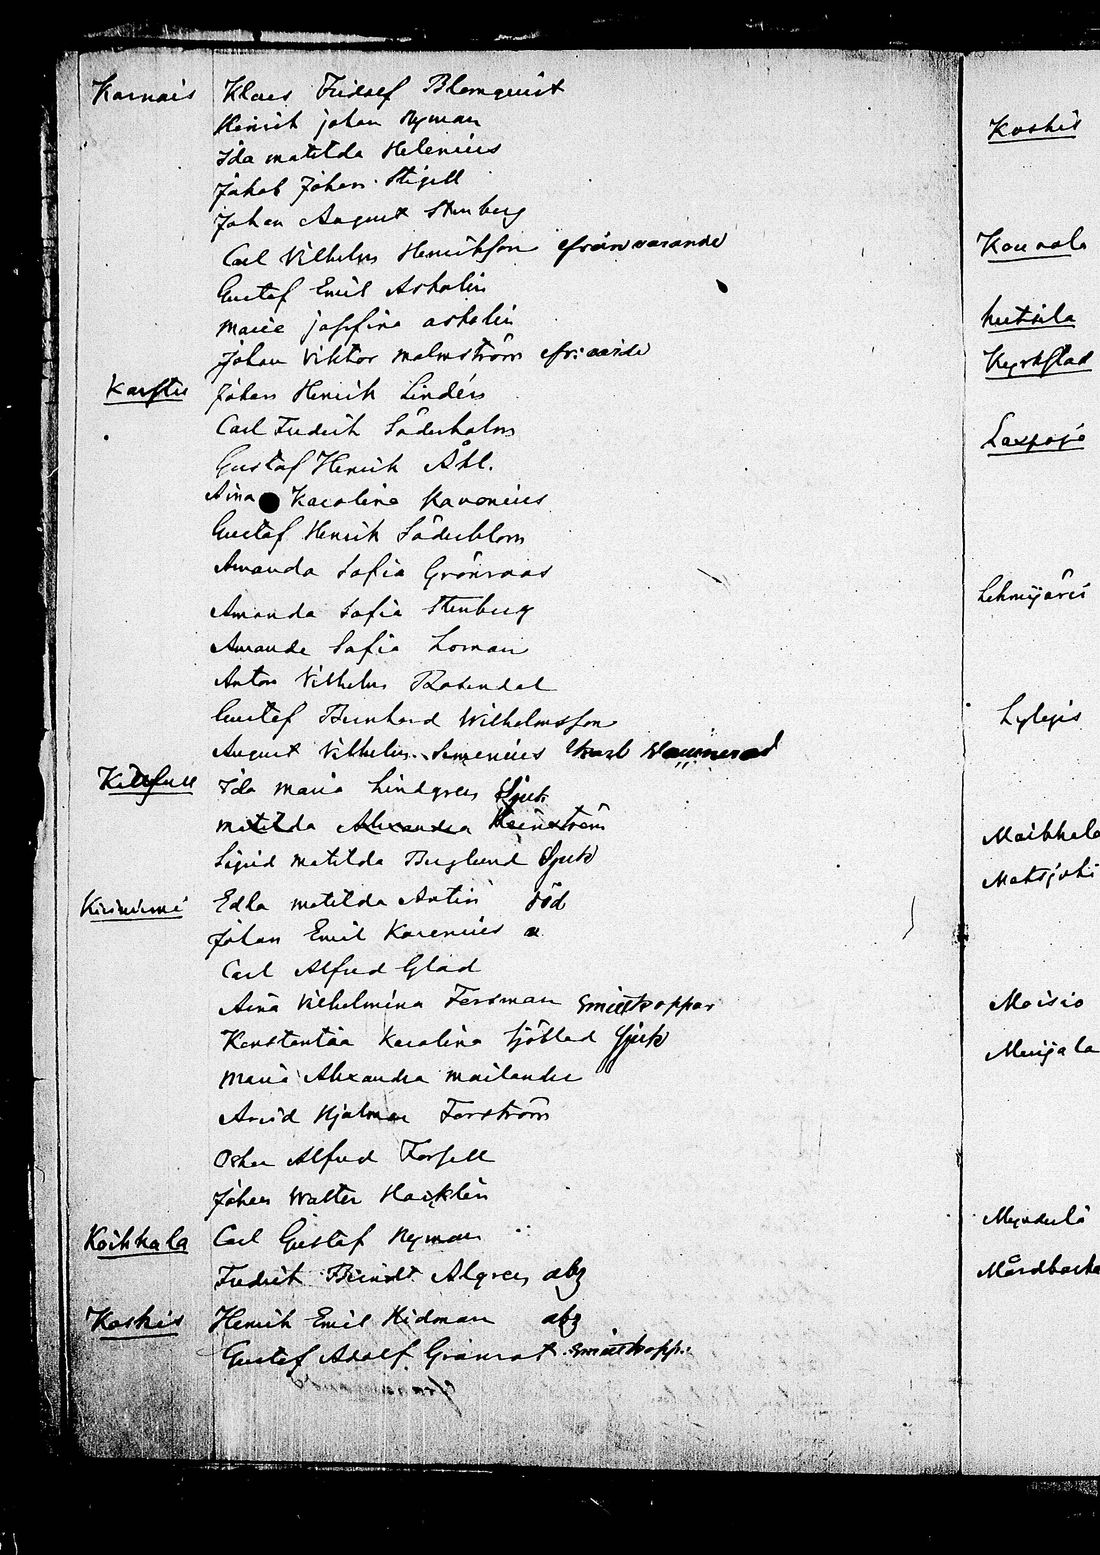 Karnais Klaes Fridolf Blomquist
Henrik johan Nyman
Ida matilda Helenius
Jakob Johan Stigell
Johan August Stenberg
Carl Vilhelm Henrikson frånvarande
Gustaf Emil Asholin
Maria josefina asholin
Johan Viktor Malmström
Johan Henrik Lindén
Carl Fredrik Söderholm
Gustaf Henrik Åhl.
Aina Karolina Kavonius
Gustaf Henrik Söderblom
Amanda Sofia Grönroos
Amanda Sofia Stenberg
Amanda Sofia Loman
Anton Vilhelm Rosendal
Gustaf Bernhard Wilhelmsson
August Vilhelm
Ida Maria Lindgren Sjuk
Matilda Alexandra
Sigrid Matilda Berglund Sjuk
Edla matilda Antin död
Johan Emil Karenius
Carl Alfred Glad
Aina Vilhelmina Forsman Smittkoppor
Konstantia Karolina Sjöblad Sjuk
Maria Alexandra Mailander
Arvid Hjalmar Forström
Oskar Alfred Forsell
Johan Walter Hacklin
Koikkala Carl Gustaf Nyman
Fredrik Berndt Algren abg
Koskis Henrik Emil Hidman abg
Gustaf Adolf Granrot Smittkopp.
Koskis
Kyrkstad
Laxpojo
Lehmijärvi
Moisio
Merijala
Mårdbacka